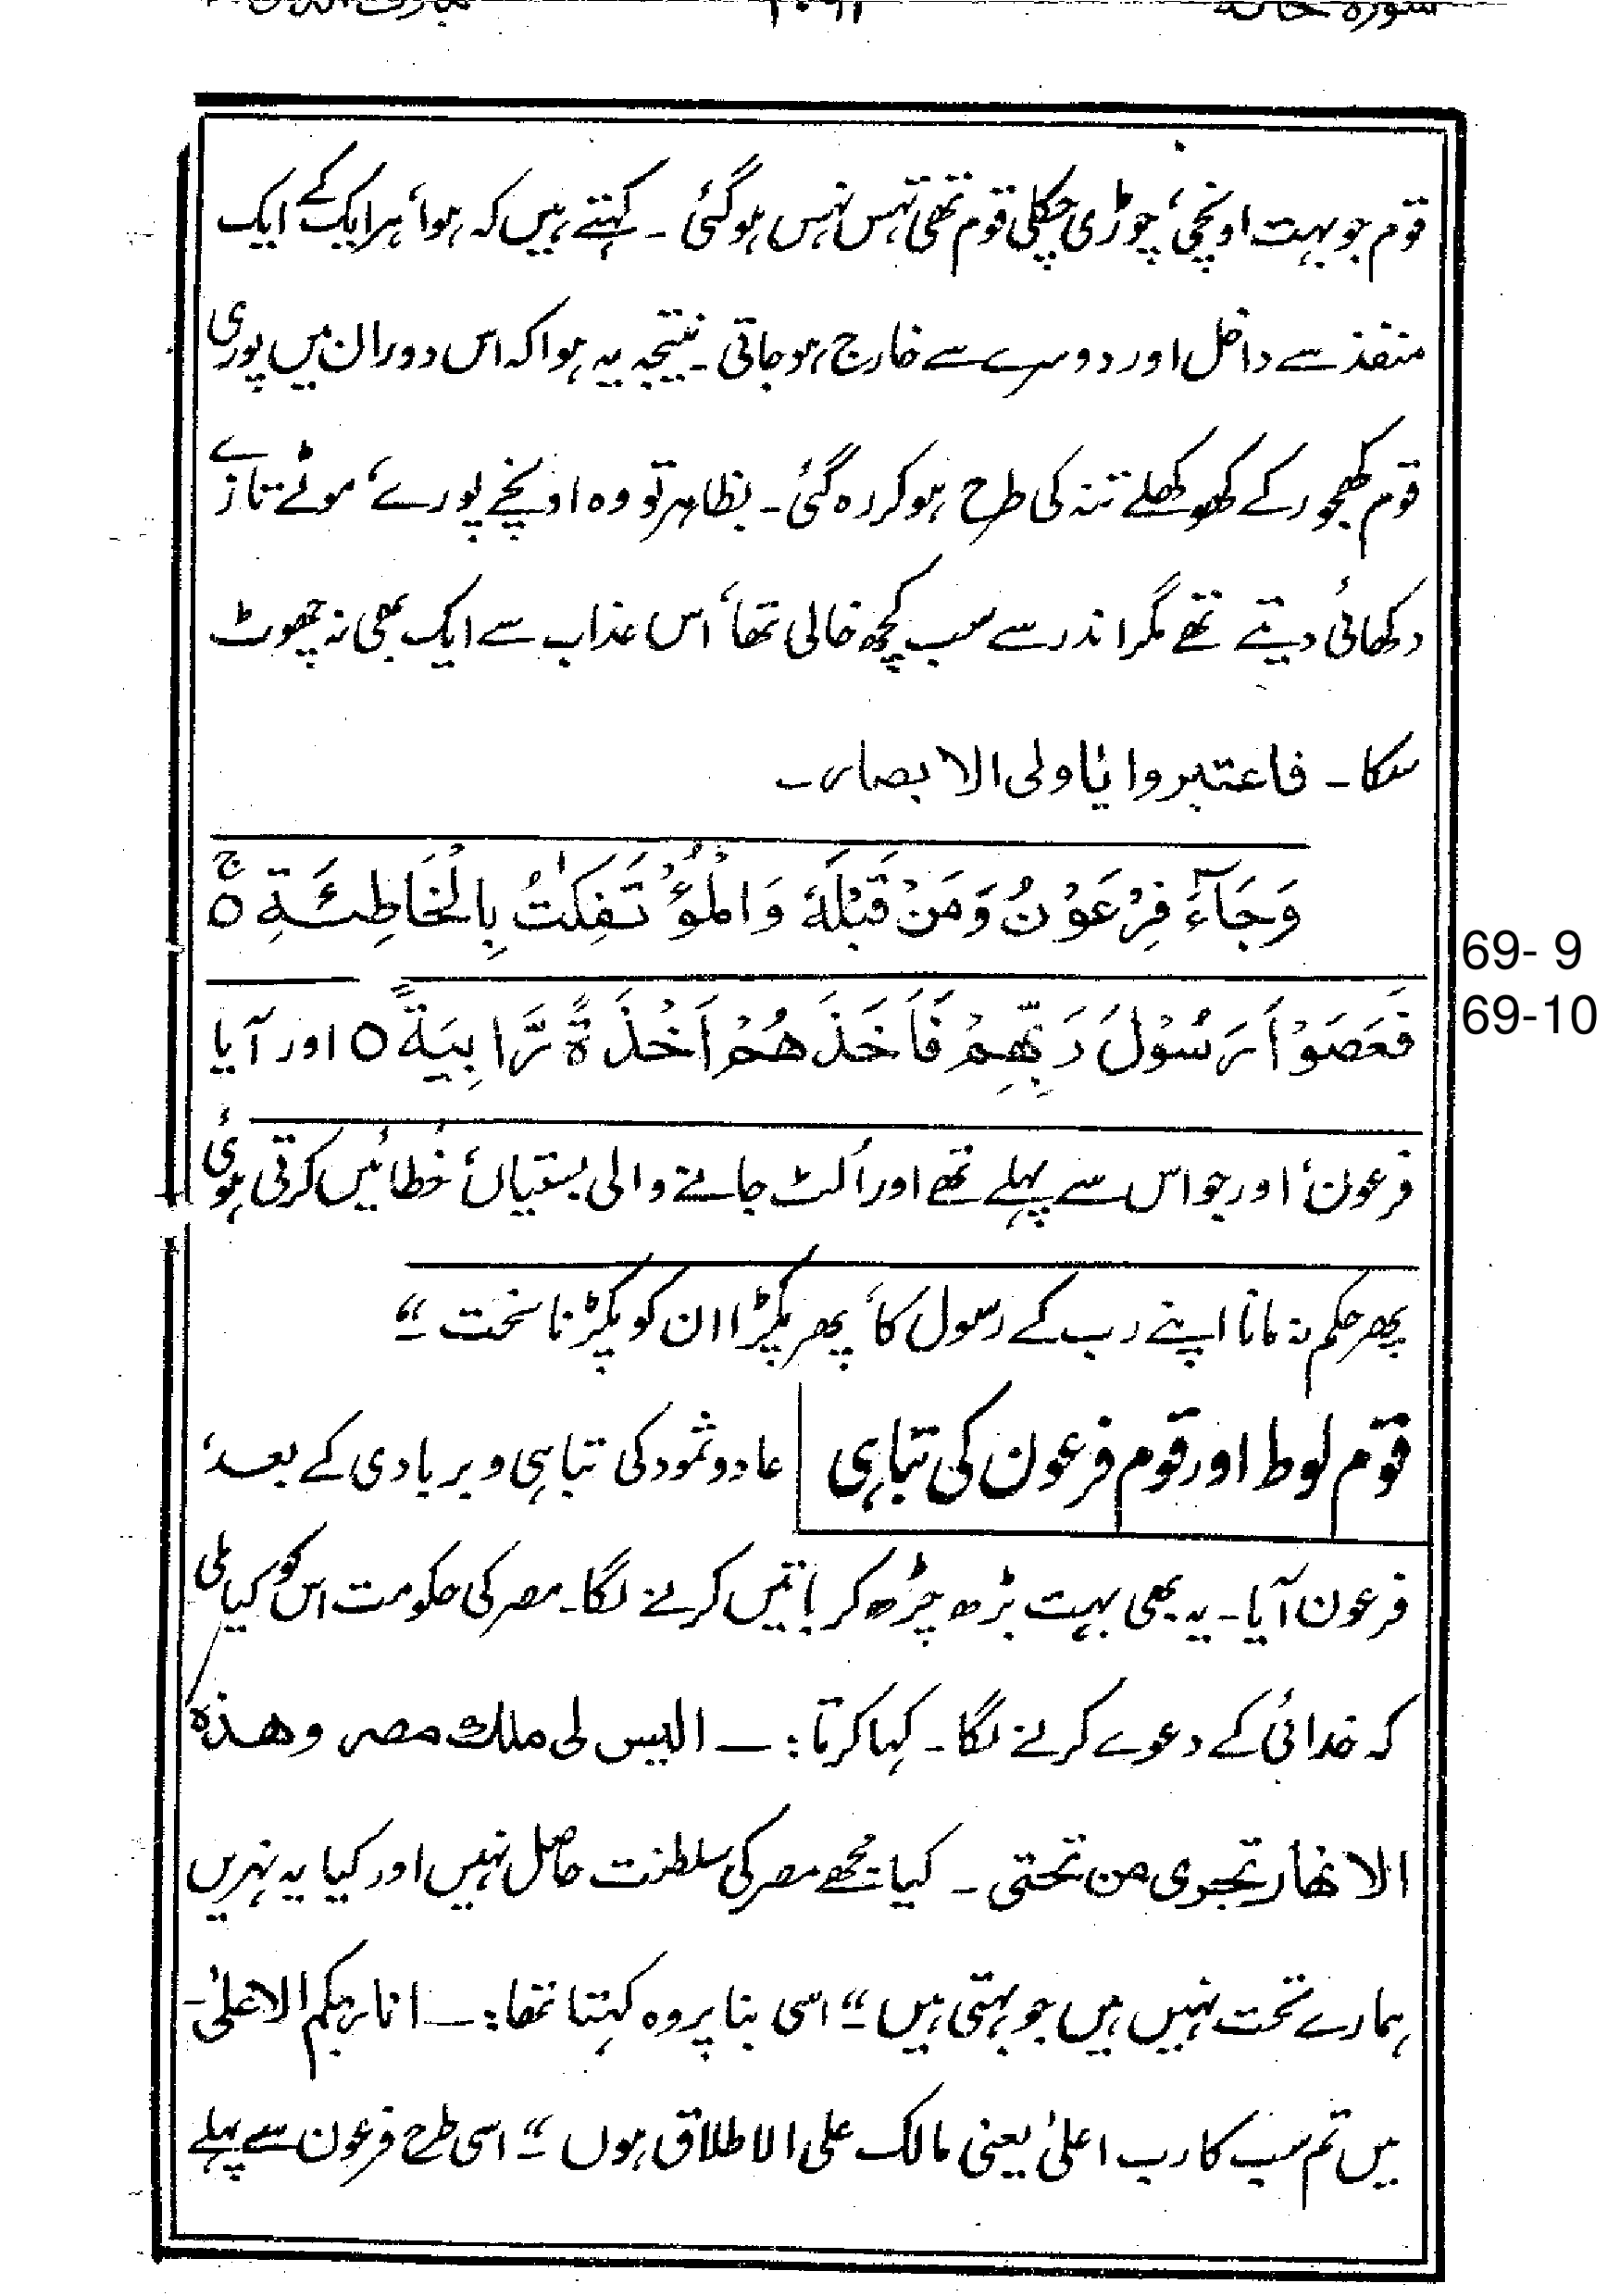 قوم جو بہت اونچی، چوڑی چکلی قوم تھی تہس نہس ہو گئی ۔ کہتے ہیں کہ ہوا، ہر ایک کے ایک
منفذ سے داخل اور دوسرے سے خارج ہو جاتی ۔ نیتجہ یہ ہوا کہ اس دوران میں پوری
قوم کھجور کے کھوکھلے تنہ کی طرح ہو کر رہ گئی ۔ بظاہر تو وہ اونچے پورے، موٹے تازے
دکھائی دیتے تھے مگر اندر سے سب کچھ خالی تھا، اس عذاب سے ایک بھی نہ چھوٹ
سکا ۔ فاعتبروا یٰاولی الابصار ۔
وَجَآءَ فِرْعَوْنُ وَمَنْ قَبْلَهٗ وَالْمُؤْتَفِكٰتُ بِالْخَاطِئَةِ ۝ ج
69- 9
فَعَصَوْا رَسُوْلَ رَبِّهِمْ فَاَخَذَهُمْ اَخْذَةً رَّابِيَةً ۝ اور آیا
69-10
فرعون، اور جو اس سے پہلے تھے اور اُلٹ جانے والی بستیاں، خطائیں کرتی ہوئی
پھر حکم نہ مانا اپنے رب کے رسول کا، پھر پکڑا ان کو پکڑنا سخت ۔“
قوم لوط اور قوم فرعون کی تباہی عاد و ثمود کی تباہی و بربادی کے بعد،
فرعون آیا ۔ یہ بھی بہت بڑھ چڑھ کر باتیں کرنے لگا ۔ مصر کی حکومت اس کو کیا ملی
کہ خدائی کے دعوے کرنے لگا ۔ کہا کرتا :۔ الیس لی ملك مصر وھذہ
الانھار تجری من تحتی ۔ کیا مجھے مصر کی سلطنت حاصل نہیں اور کیا یہ نہریں
ہمارے تحت نہیں ہیں جو بہتی ہیں ۔“ اسی بنا پر وہ کہتا تھا :۔ انا ربکم الاعلیٰ ۔
میں تم سب کا رب اعلیٰ یعنی مالک علی الاطلاق ہوں ۔“ اسی طرح فرعون سے پہلے